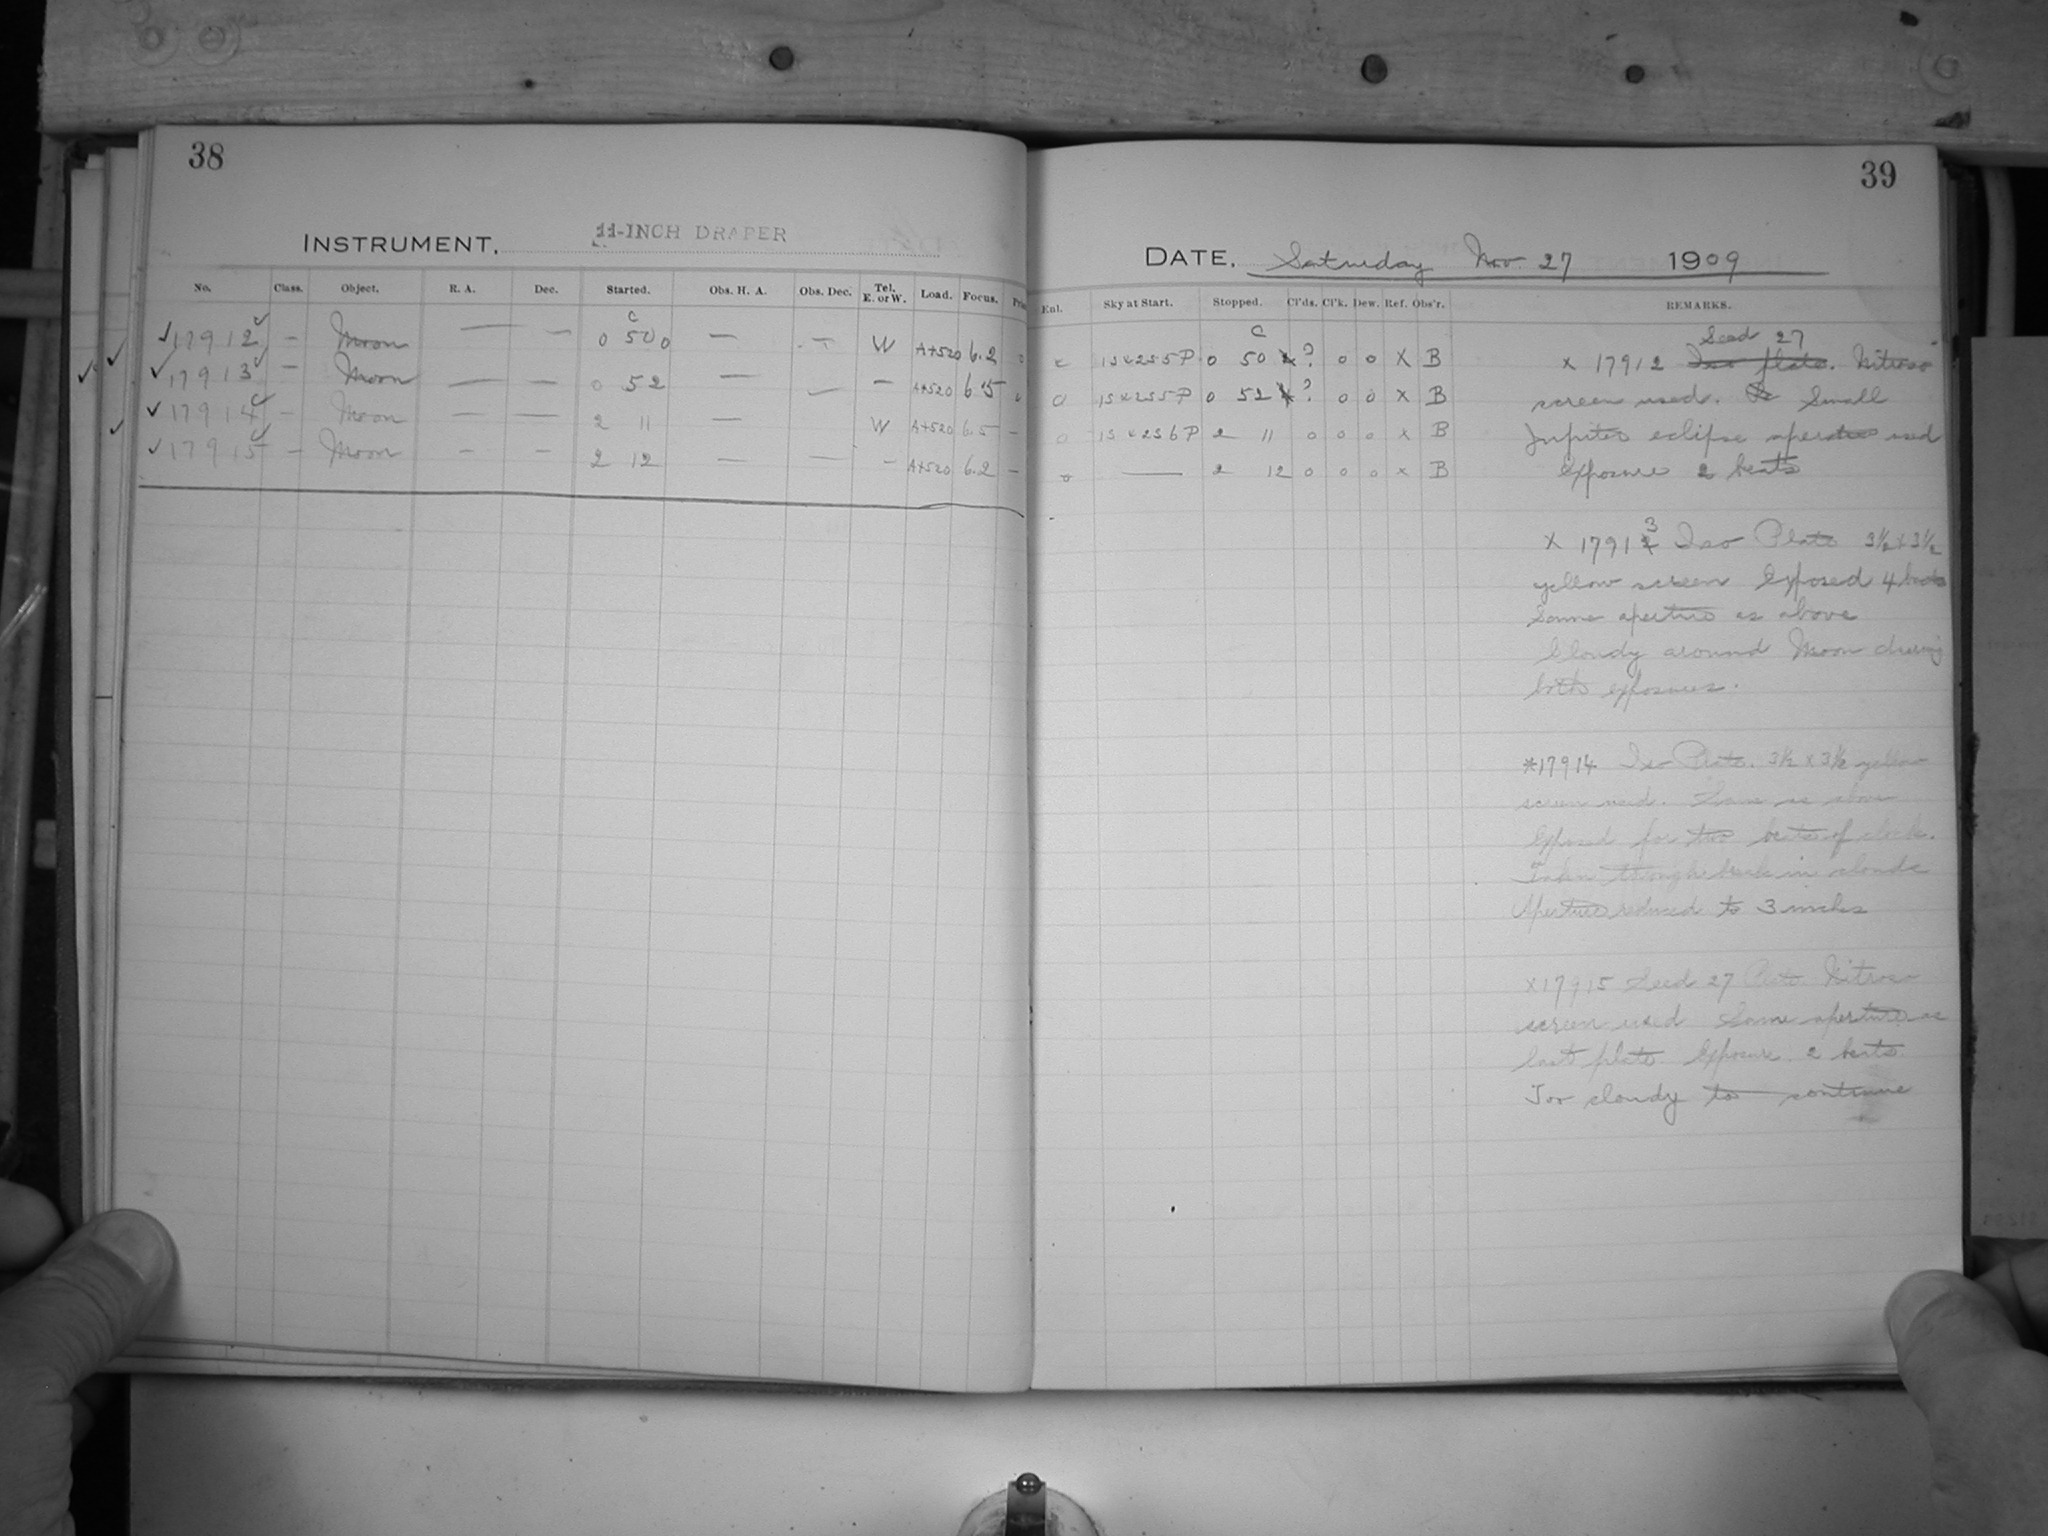 38
INSTRUMENT. 11-INCH DRAPER
No. Class. Object. R. A. Dec. Started. Obs. H. A. Obs. Dec. Tel. E. or W. Load. Focus.
C
✓17912✓ — Moon — — 0 50 0 — — W A+520 6.2
✓17913✓ — Moon — — 0 52 — — — A+520 6.5
✓17914✓ — Moon — — 2 11 — W A+520 6.5 —
✓17915✓ — Moon — — 2 12 — — — A+520 6.2 —
39
DATE. Saturday Nov. 27 1909
Enl. Sky at Start. Stopped. Cl'ds. Cl'k. Dew. Ref. Obs'r. REMARKS.
C
15x255P 0 50 ? 0 0 X B
0 15x255P 0 52 ? 0 0 X B
0 15x256P 2 11 0 0 0 x B
0 — 2 12 0 0 0 x B
Seed 27
x 17912 Iso plate. Nitroso
screen used. Small
Jupiter eclipse aperture used
Exposure 2 beats
x 17913 Iso Plate 3½x3½
yellow screen Exposed 4 beats
Same aperture as above
Cloudy around Moon during
both exposures.
*17914 Iso Plate. 3½ x 3½ yellow
screen used. Same as above
Exposed for two beats of clock.
Taken through break in clouds
Aperture reduced to 3 inches
x17915 Seed 27 Plate Nitroso
screen used Same aperture as
last plate. Exposure 2 beats.
Too cloudy to continue